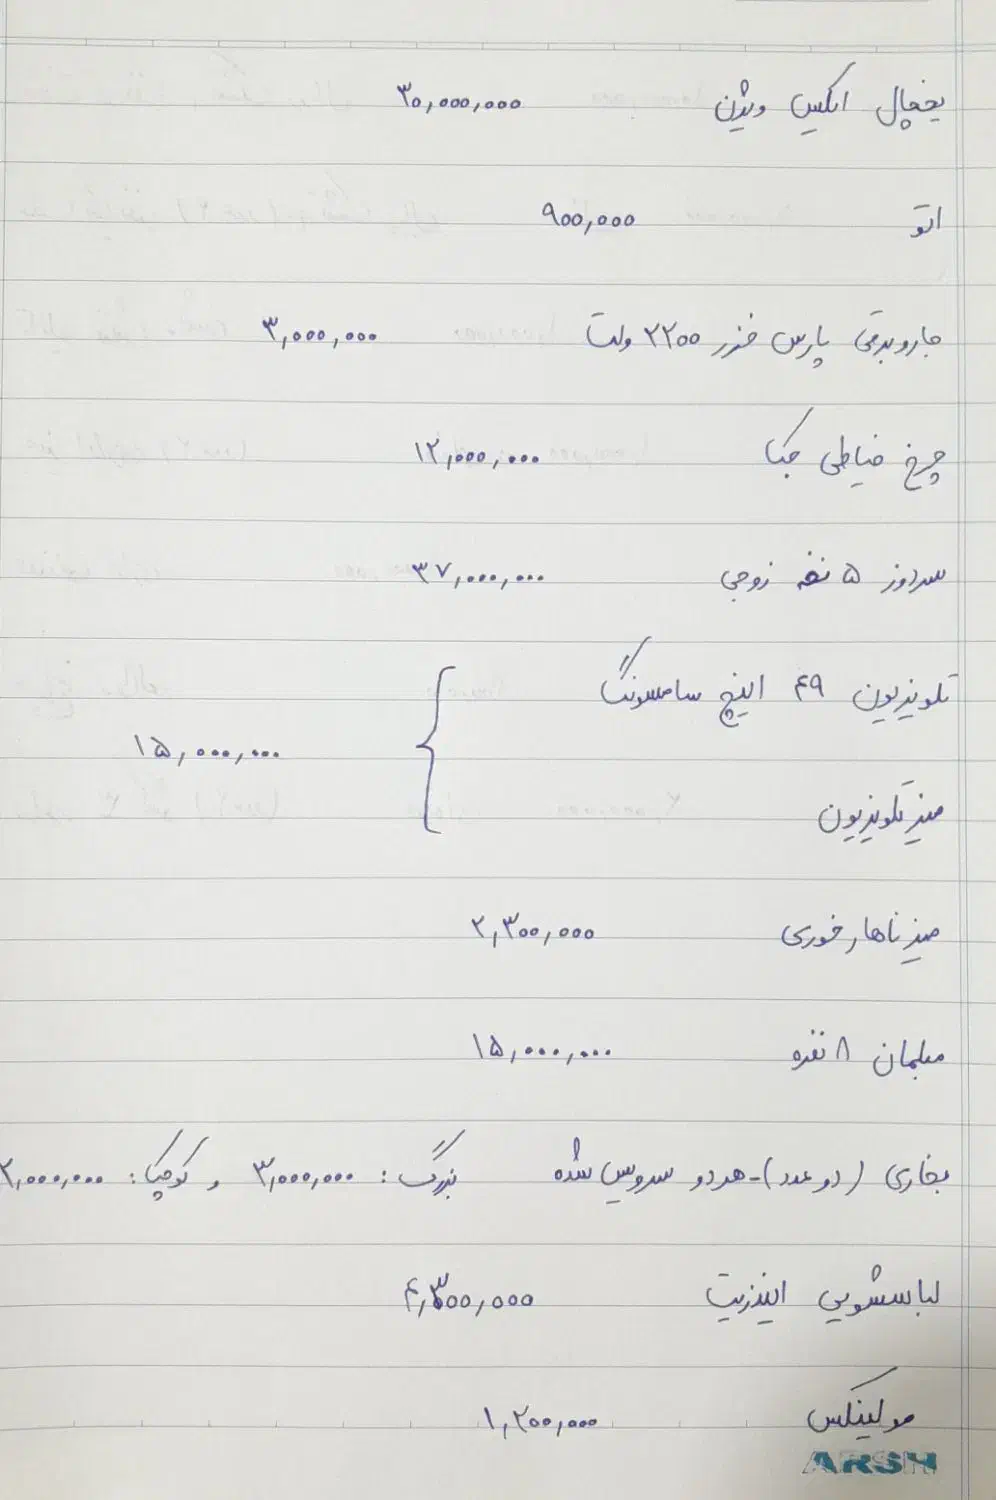 یخچال ایکس ویژن ۳۰,۰۰۰,۰۰۰
اتو ۹۰۰,۰۰۰
جاروبرقی پارس خزر ۲۲۰۰ ولت ۳,۰۰۰,۰۰۰
چرخ خیاطی جکا ۱۲,۰۰۰,۰۰۰
سردوز ۵ نخه زوجی ۳۷,۰۰۰,۰۰۰
تلویزیون ۴۹ اینچ سامسونگ
۱۵,۰۰۰,۰۰۰
میز تلویزیون
میز ناهارخوری ۲,۳۰۰,۰۰۰
مبلمان ۸ نفره ۱۵,۰۰۰,۰۰۰
بخاری (دو عدد) - هر دو سرویس شده بزرگ: ۳,۰۰۰,۰۰۰ و کوچک: ۲,۰۰۰,۰۰۰
لباسشویی ایندزیت ۴,۳۰۰,۰۰۰
مولینکس ۱,۲۰۰,۰۰۰
ARSH